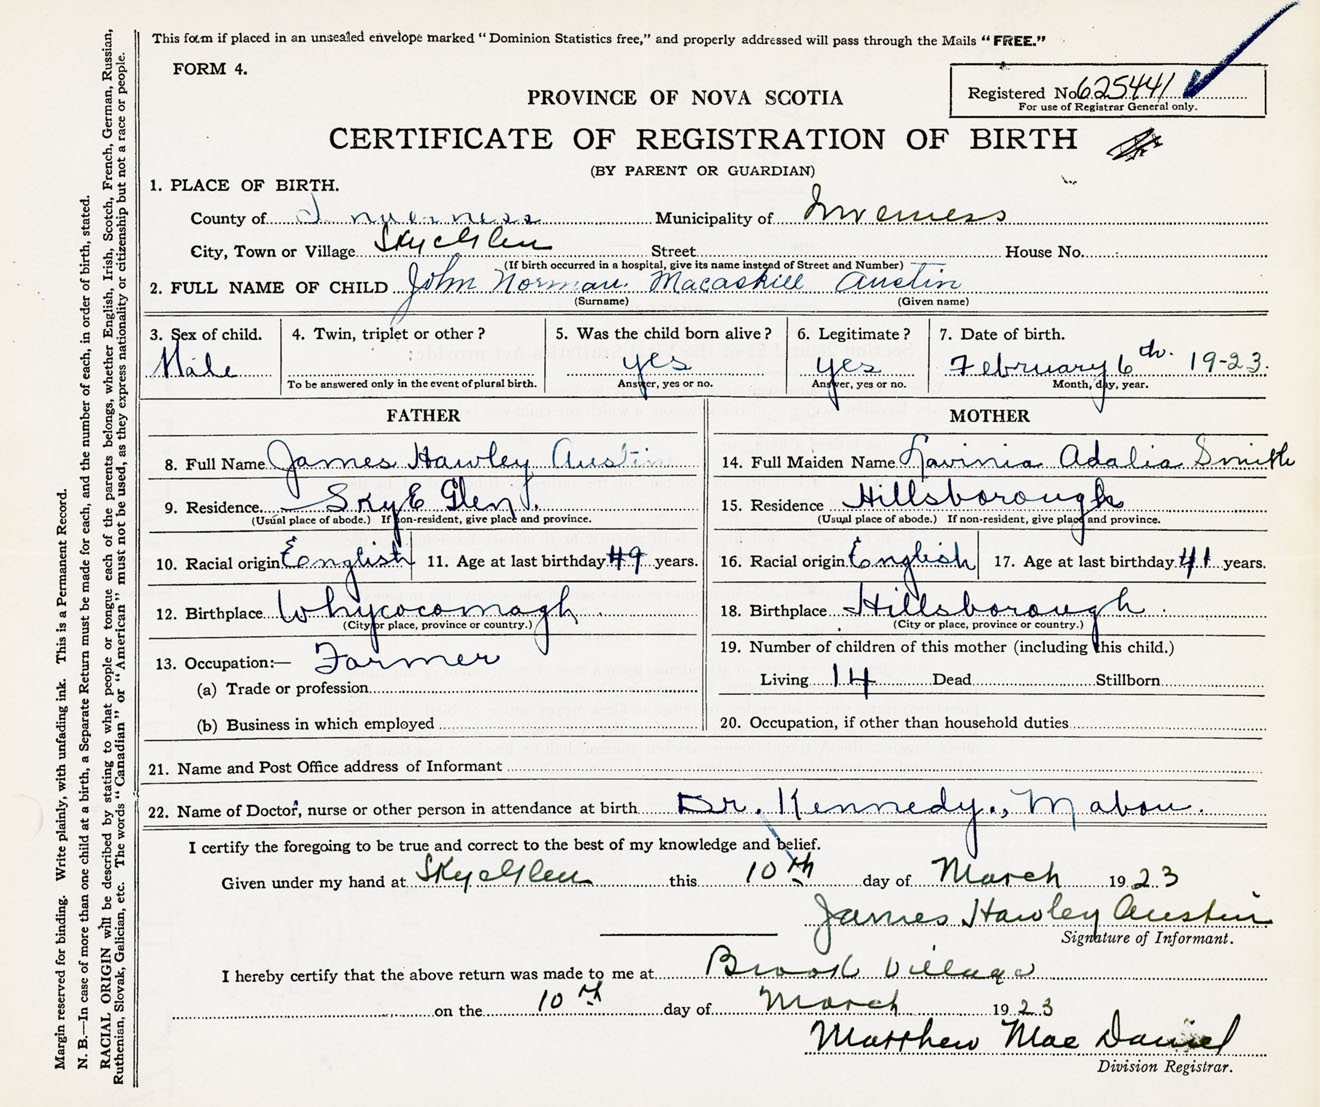 This form if placed in an unsealed envelope marked "Dominion Statistics free," and properly addressed will pass through the Mails "FREE."
FORM 4.
Registered No. 625441
For use of Registrar General only.
PROVINCE OF NOVA SCOTIA
CERTIFICATE OF REGISTRATION OF BIRTH
(BY PARENT OR GUARDIAN)
1. PLACE OF BIRTH.
County of Inverness Municipality of Inverness
City, Town or Village Skye Glen Street House No.
(If birth occurred in a hospital, give its name instead of Street and Number)
2. FULL NAME OF CHILD John Norman Macaskill Austin
(Surname) (Given name)
3. Sex of child. 4. Twin, triplet or other? 5. Was the child born alive? 6. Legitimate? 7. Date of birth.
Male yes yes February 6th. 19-23.
To be answered only in the event of plural birth. Answer, yes or no. Answer, yes or no. Month, day, year.
FATHER
8. Full Name James Hawley Austin
9. Residence. Sky E Glen.
(Usual place of abode.) If non-resident, give place and province.
10. Racial origin English 11. Age at last birthday 49 years.
12. Birthplace Whycocomagh
(City or place, province or country.)
13. Occupation:— Farmer
(a) Trade or profession
(b) Business in which employed
MOTHER
14. Full Maiden Name Lavinia Adalia Smith
15. Residence Hillsborough
(Usual place of abode.) If non-resident, give place and province.
16. Racial origin English 17. Age at last birthday 41 years.
18. Birthplace Hillsborough.
(City or place, province or country.)
19. Number of children of this mother (including this child.)
Living 14 Dead Stillborn
20. Occupation, if other than household duties
21. Name and Post Office address of Informant
22. Name of Doctor, nurse or other person in attendance at birth Dr. Kennedy., Mabou.
I certify the foregoing to be true and correct to the best of my knowledge and belief.
Given under my hand at Skye Glen this 10th day of March 1923
James Hawley Austin
Signature of Informant.
I hereby certify that the above return was made to me at Brook Village
on the 10th day of March 1923
Matthew Mac Daniel
Division Registrar.
Margin reserved for binding. Write plainly, with unfading ink. This is a Permanent Record.
N. B.—In case of more than one child at a birth, a Separate Return must be made for each, and the number of each, in order of birth, stated.
RACIAL ORIGIN will be described by stating to what people or tongue each of the parents belongs, whether English, Irish, Scotch, French, German, Russian,
Ruthenian, Slovak, Galician, etc. The words "Canadian" or "American" must not be used, as they express nationality or citizenship but not a race or people.